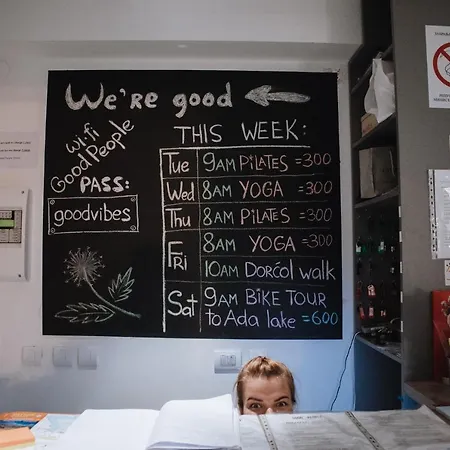 We're good
Wi-fi
Good People
PASS:
goodvibes
THIS WEEK:
Tue 9AM PILATES =300
Wed 8AM YOGA =300
Thu 8AM PILATES =300
Fri 8AM YOGA =300
10AM Dorćol walk
Sat 9AM BIKE TOUR
to Ada lake =600